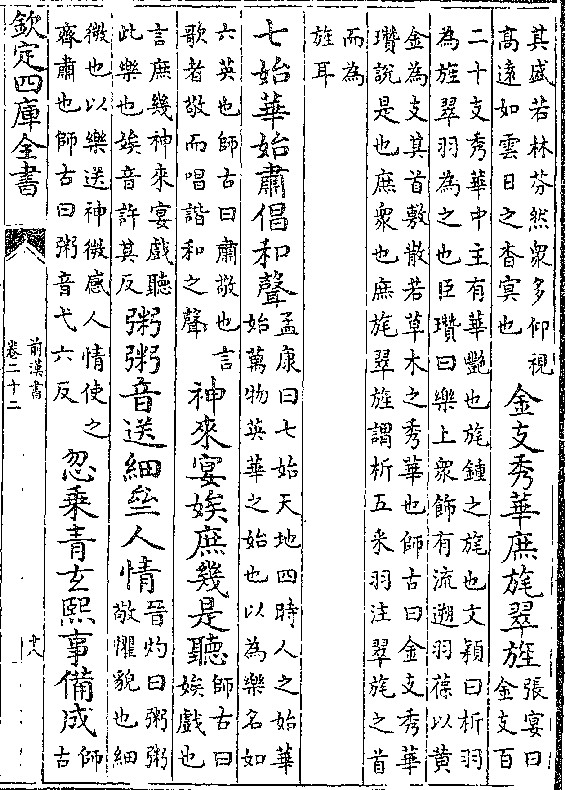 其盛若林芬然衆多仰視
髙逺如雲日之杳冥也
金支秀華庶旄翠旌
張宴曰
金支百
二十支秀華中主有華艷也旄鍾之旄也文穎曰析羽
為旌翠羽為之也臣瓚曰樂上衆飾有流遡羽葆以黄
金為支其首敷散若草木之秀華也師古曰金支秀華
瓚說是也庶衆也庶旄翠旌謂析五采羽注翠旄之首
而為
旌耳
七始華始肅倡和聲
孟康曰七始天地四時人之始華
始萬物英華之始也以為樂名如
六英也師古曰肅敬也言
歌者敬而唱諧和之聲
神來宴娭庶幾是聽
師古曰
娭戲也
言庶幾神來宴戲聽
此樂也娭音許其反
粥粥音送細㘳人情
晉灼曰粥粥
敬懼貌也細
微也以樂送神微感人情使之
齊肅也師古曰粥音弋六反
忽乘青玄熙事備成
師
古
欽定四庫全書
前漢書
卷二十二
十八